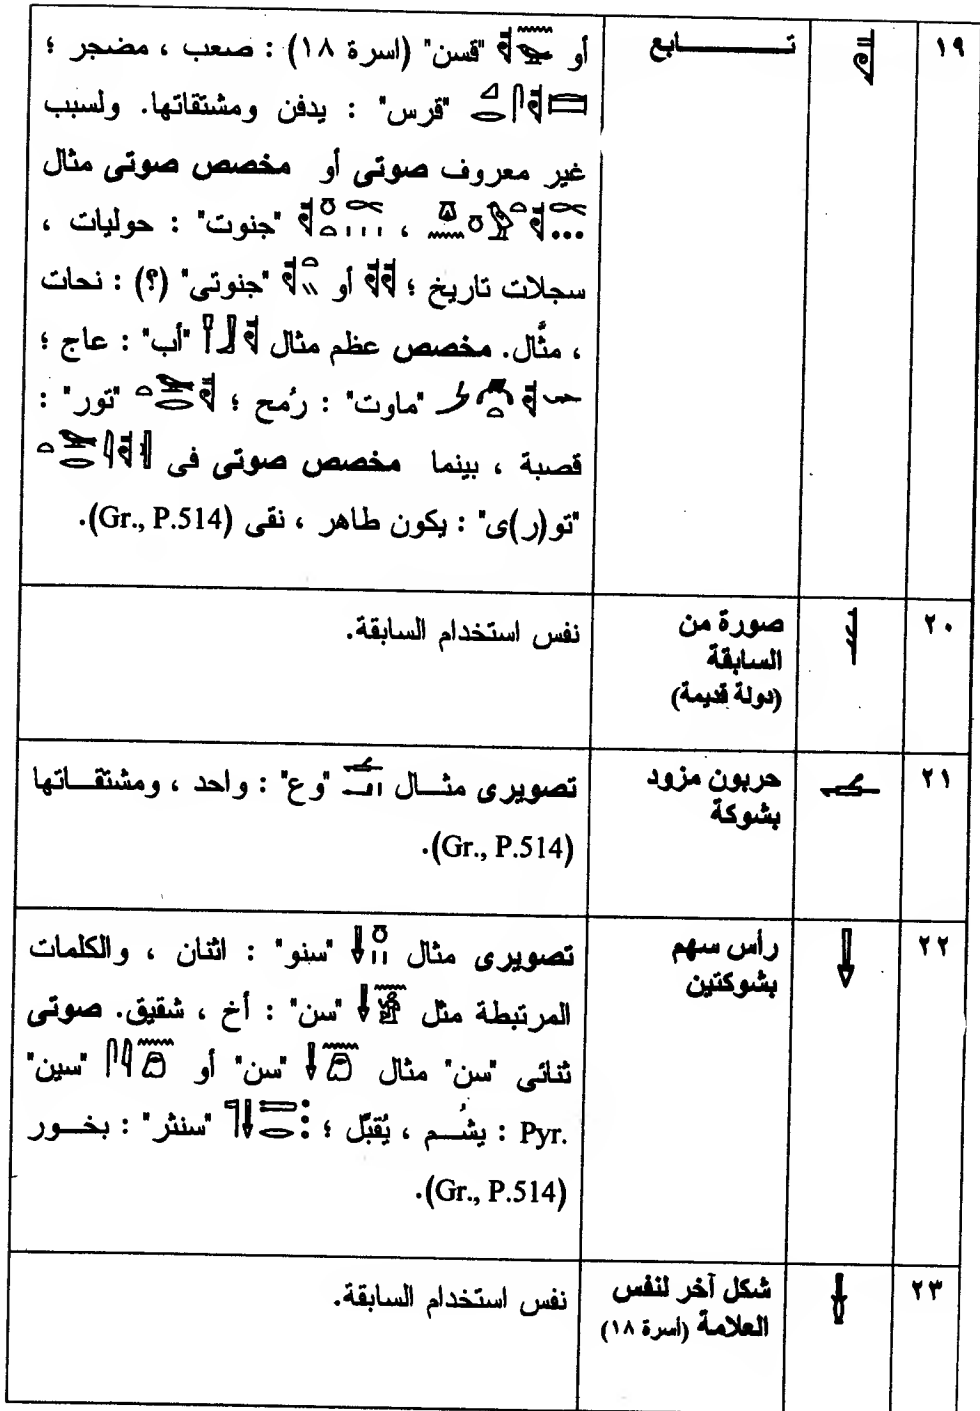 ١٩ تـــــــابع أو "قسن" (اسرة ١٨) : صعب ، مضجر ؛
"قرس" : يدفن ومشتقاتها. ولسبب
غير معروف صوتى أو مخصص صوتى مثال
، "جنوت" : حوليات ،
سجلات تاريخ ؛ أو "جنوتى" (؟) : نحات
، مثَّال. مخصص عظم مثال "أب" : عاج ؛
"ماوت" : رُمح ؛ "تور" :
قصبة ، بينما مخصص صوتى فى
"تو(ر)ى" : يكون طاهر ، نقى (Gr., P.514).
٢٠ صورة من نفس استخدام السابقة.
السابقة
(دولة قديمة)
٢١ حربون مزود تصويرى مثـــال "وع" : واحد ، ومشتقـــاتها
بشوكة (Gr., P.514).
٢٢ رأس سهم تصويرى مثال "سنو" : اثنان ، والكلمات
بشوكتين المرتبطة مثل "سن" : أخ ، شقيق. صوتى
ثنائى "سن" مثال "سن" أو "سين"
Pyr. : يشُـــم ، يُقبَّل ؛ "سنثر" : بخـــور
(Gr., P.514).
٢٣ شكل آخر لنفس نفس استخدام السابقة.
العلامة (أسرة ١٨)